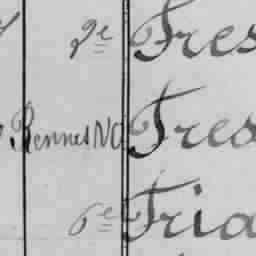 2e Tres
Rennes NO Tres
6e Tria